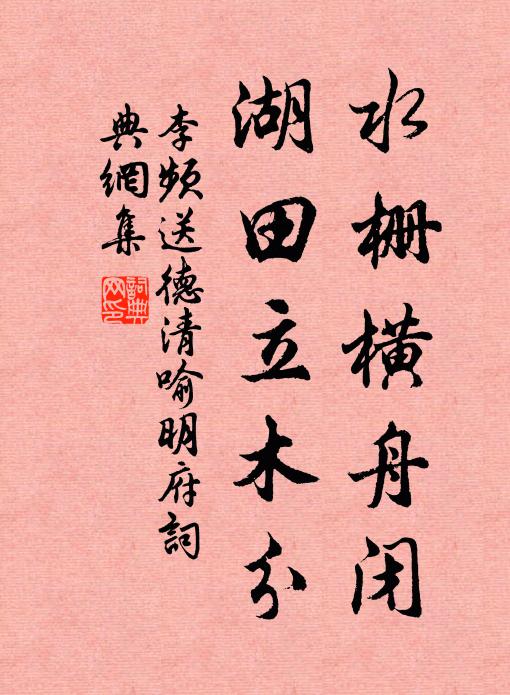 水栅橫舟闭
湖田立木分
李频送德清喻明府詞
典網集
詞典网印